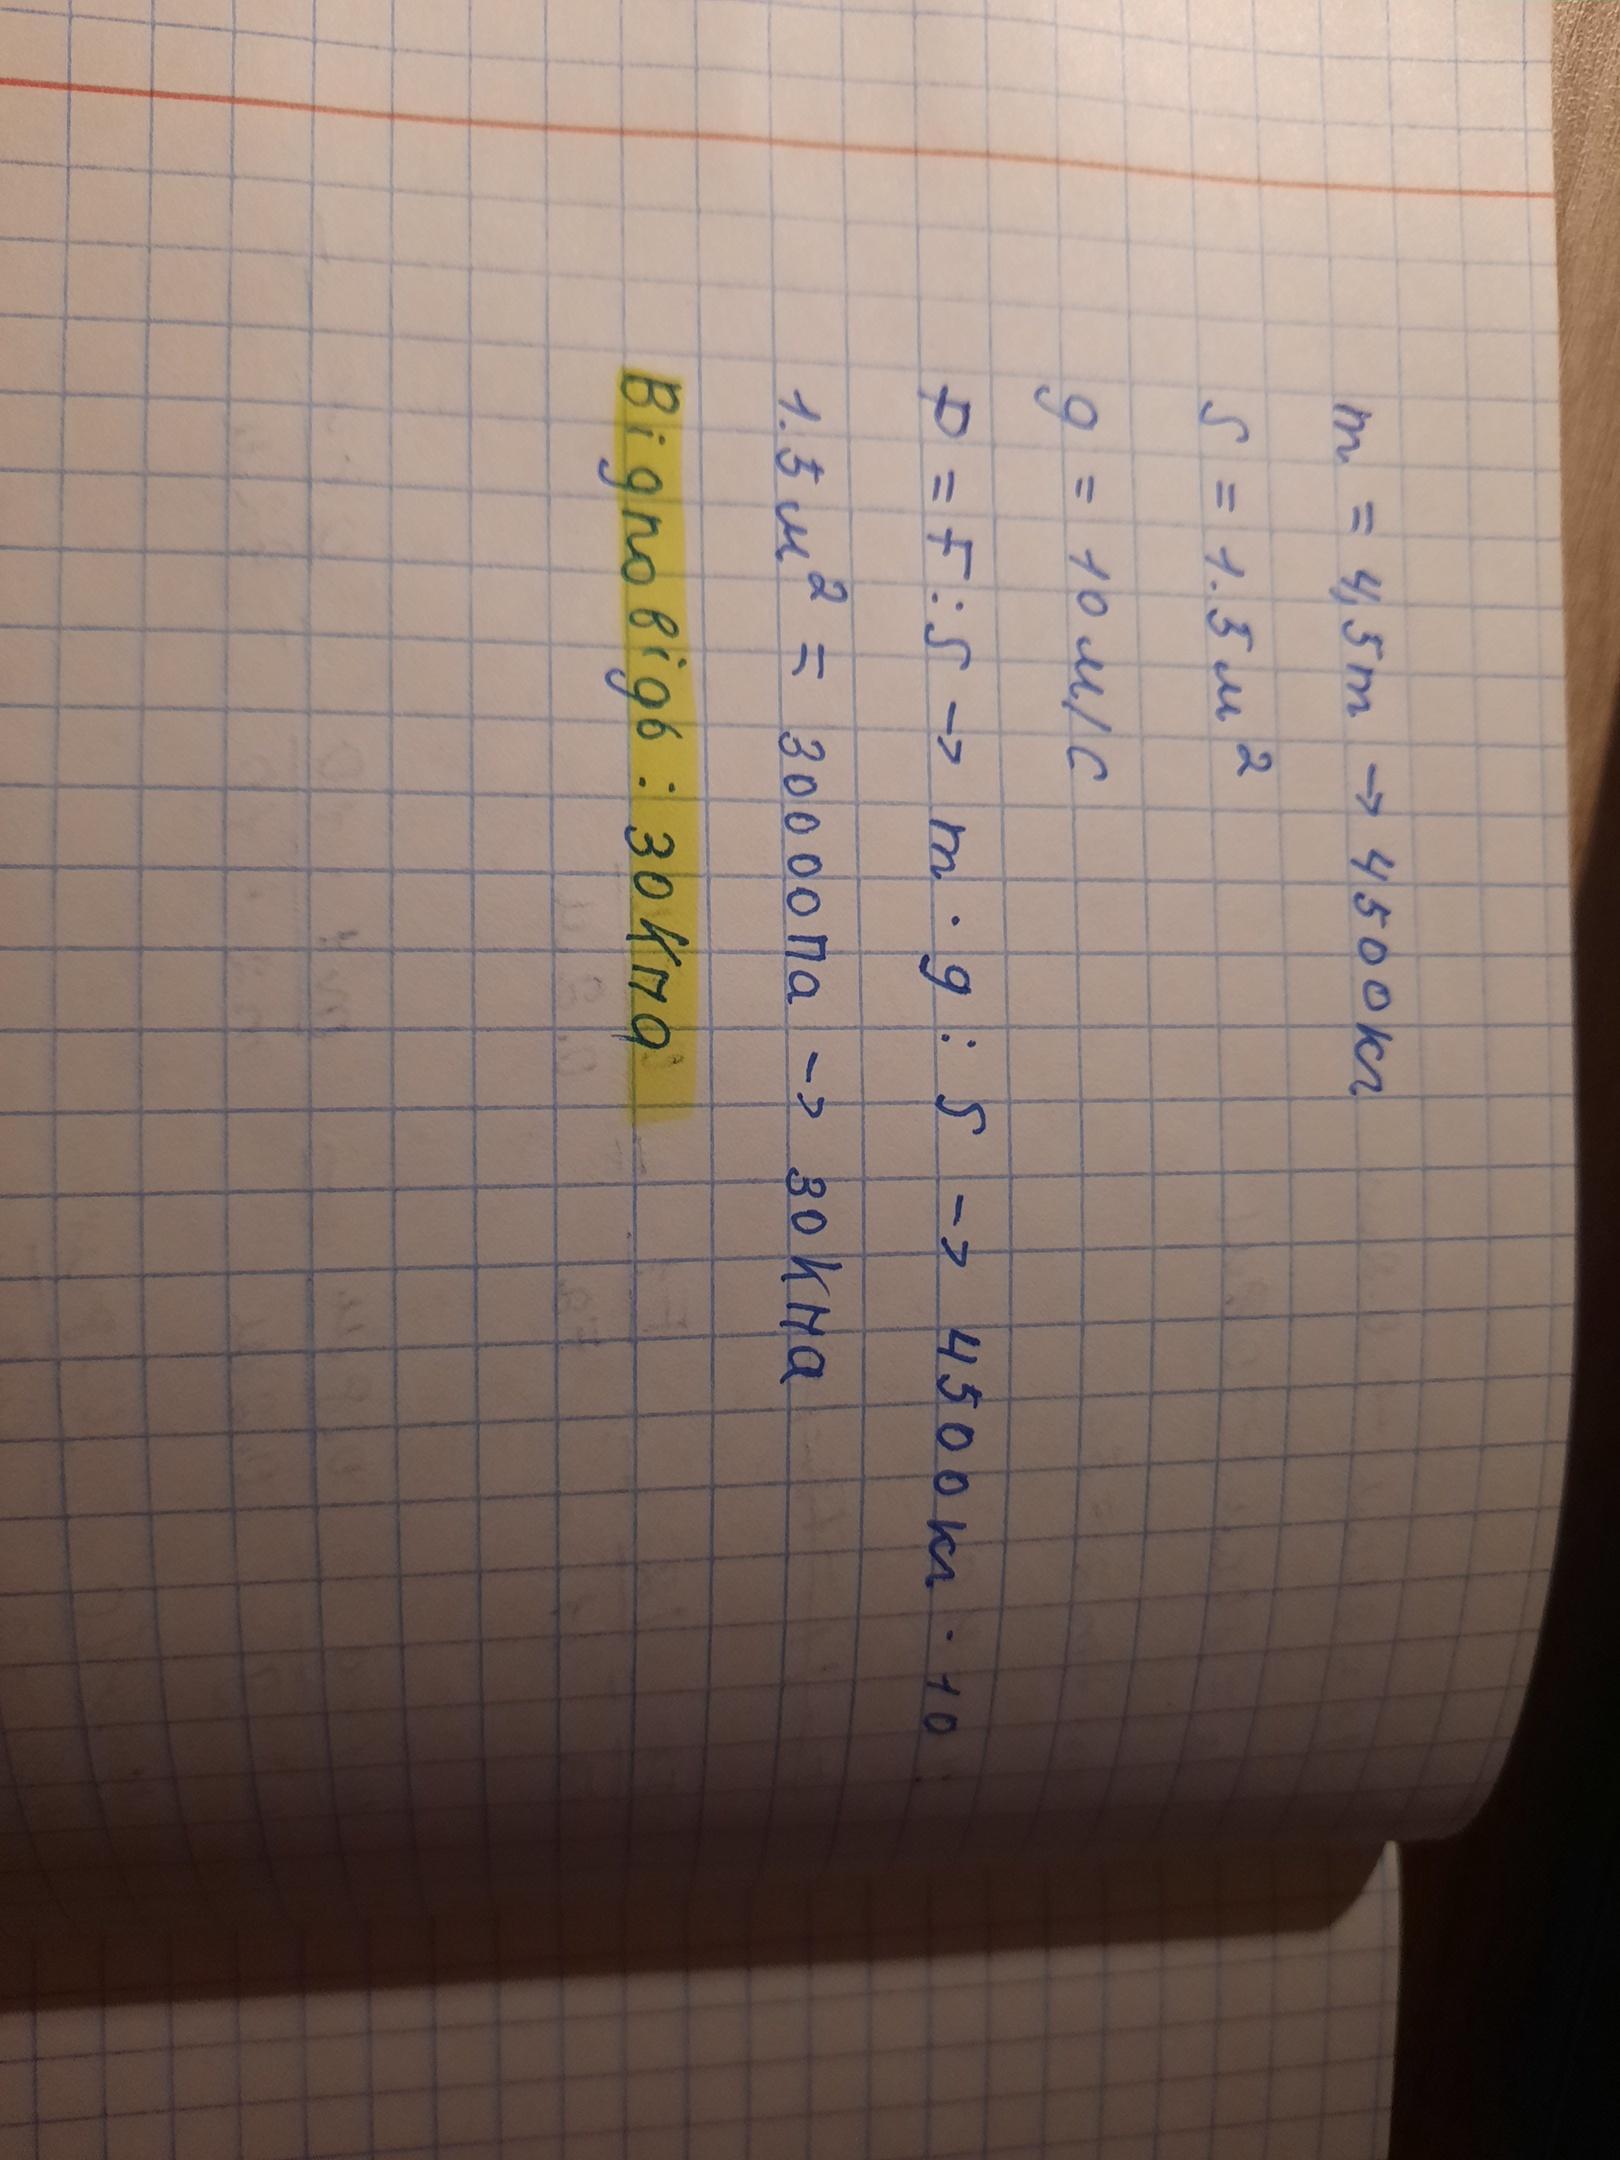 m = 4,5т → 4500кг
S = 1.5м²
g = 10м/с
p = F : S → m · g : S → 4500кг · 10 :
1.5м² = 30000па → 30Кна
Відповідь : 30Кна